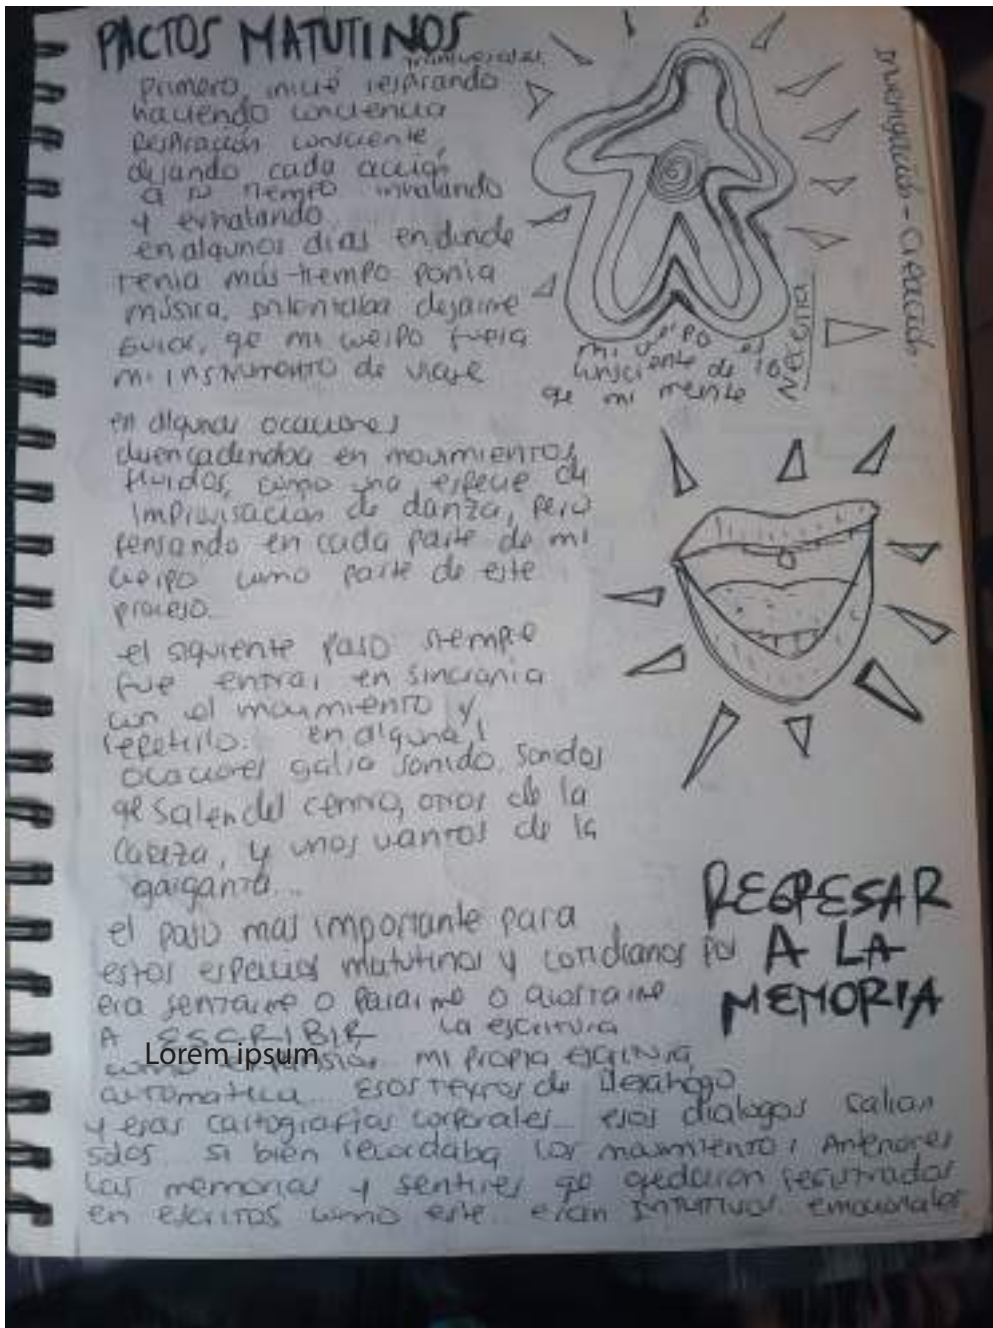 PACTOS MATUTINOS
primero, inicié respirando
haciendo conciencia
Respiración consciente,
dejando cada acción
a su tiempo inhalando
y exhalando
en algunos días en dinde
tenia más tiempo ponia
música, intentaba dejarme
Guiar, qe mi cuerpo fuera
mi INSTRUMENTO de viaje
en algunas ocaciones
desencadenaba en movimientos
fluidos, como una especie de
improvisación de danza, pero
pensando en cada parte de mi
cuerpo como parte de este
proceso...
el siguiente paso siempre
fue entrar en sincronia
con el movimiento y,
repetirlo. en algunas
ocaciones salia sonido, sonidos
qe salen del centro, otros de la
cabeza, y unos cuantos de la
garganta...
el paso mas importante para
estos espacios matutinos y cotidianos
era sentarme o pararme o acostarme
A ESCRIBIR la escritura
Lorem ipsum
como extensión mi propia escritura
automatica... esos textos de desahogo
y esas cartografías corporales... esos dialogos salian
solos... si bien recordaba los movimientos Anteriores
las memorias y sentires qe qedaron registrados
en escritos como este... eran INTUITIVOS. emocionales
investigación - creación.
mi cuerpo es
consciente de lo
qe mi mente
REGRESAR
A LA
MEMORIA